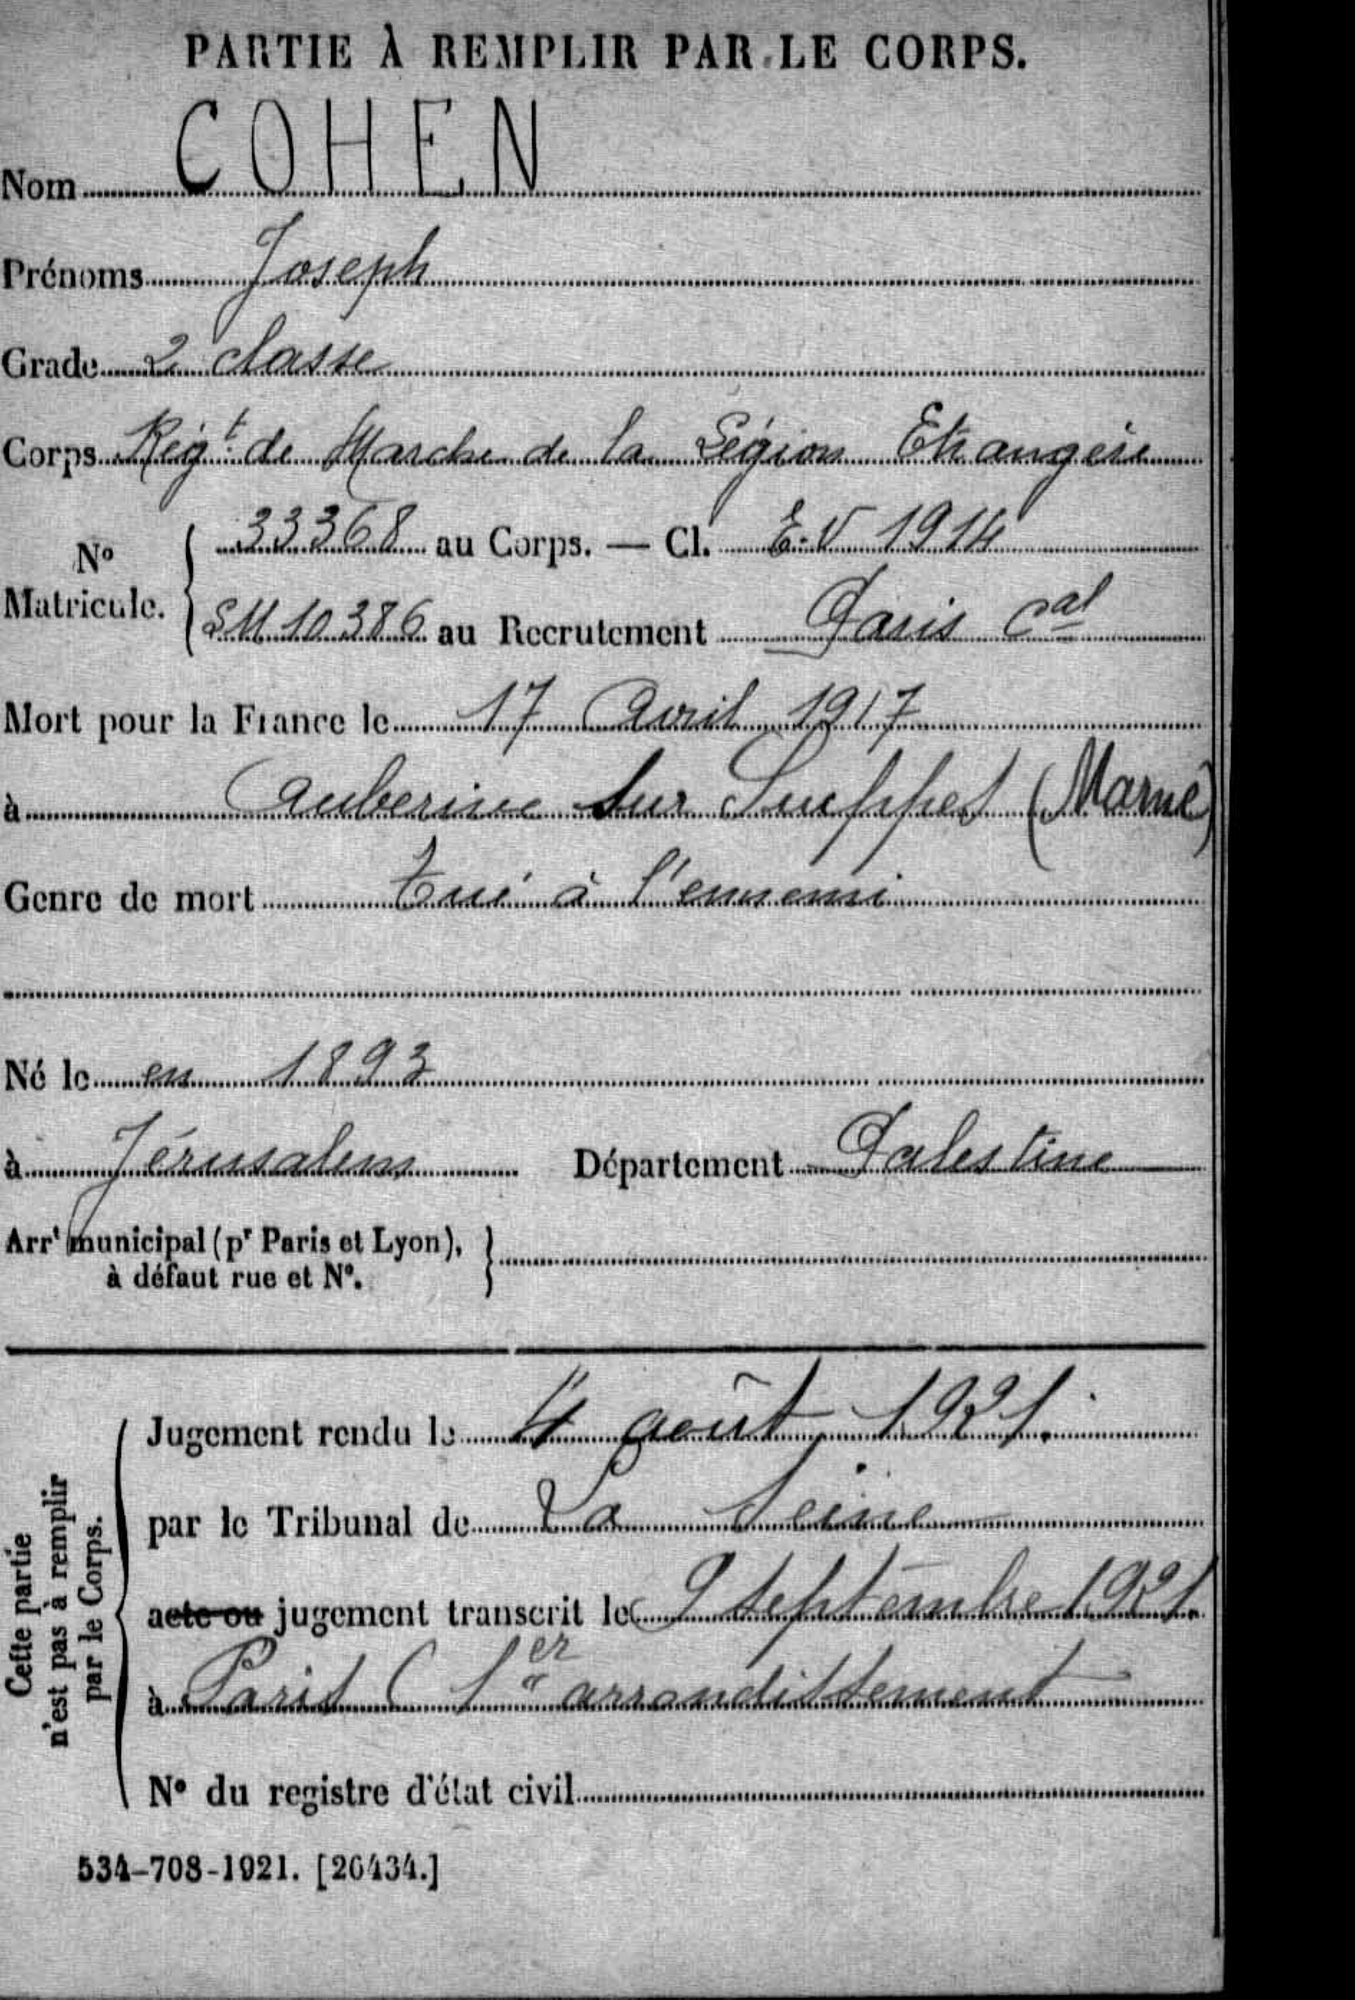 PARTIE À REMPLIR PAR LE CORPS.
Nom COHEN
Prénoms Joseph
Grade 2 classe
Corps Régt de Marche de la Légion Etrangère
No Matricule. 33368 au Corps. — Cl. E.V 1914
SM 10386 au Recrutement Paris Cal
Mort pour la France le 17 Avril 1917
à Auberive sur Suippes (Marne)
Genre de mort Tué à l'ennemi
Né le en 1893
à Jérusalem Département Palestine
Arrt municipal (pr Paris et Lyon),
à défaut rue et No.
Cette partie
n'est pas à remplir
par le Corps.
Jugement rendu le 4 août 1921.
par le Tribunal de La Seine
acte ou jugement transcrit le 9 septembre 1921.
à Paris (1er arrondissement
No du registre d'état civil
534-708-1921. [26434.]